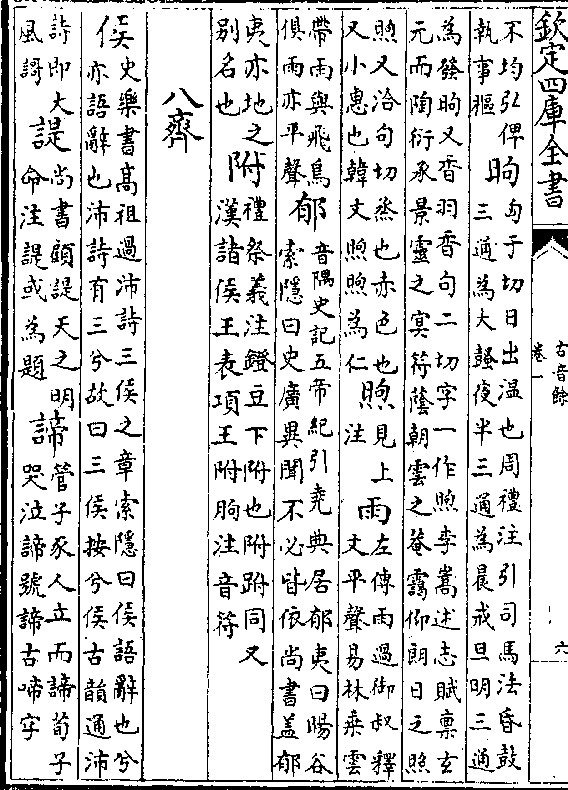 欽定四庫全書
古音餘
卷一
六
不均弘俾
執事樞
昫
匀于切日出温也周禮注引司馬法昏鼓
三通為大鼜夜半三通為晨戒旦明三通
為發昫又音羽香句二切字一作煦李暠述志賦稟玄
元而陶衍承景靈之冥符蔭朝雲之菴靄仰朗日之照
煦又洽句切烝也赤色也
又小惠也韓文煦煦為仁
煦
見上
注
雨
左傳雨過御叔釋
文平聲易林乗雲
帶雨與飛鳥
俱雨亦平聲
郁
音隅史記五帝紀引堯典居郁夷曰暘谷
索隱曰史廣異聞不必皆依尚書盖郁
夷亦地之
别名也
附
禮祭義注鐙豆下附也附跗同又
漢諸侯王表項王附朐注音符
八齊
侯
史樂書髙祖過沛詩三侯之章索隱曰侯語辭也兮
亦語辭也沛詩有三兮故曰三侯按兮侯古韻通沛
詩即大
風謌
諟
尚書顧諟天之明
命注諟或為題
諦
管子豕人立而諦荀子
哭泣諦號諦古啼字